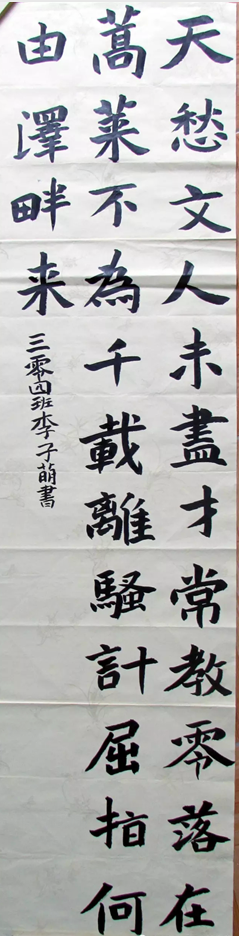 天愁文人未盡才常教零落在
蒿萊不為千載離騷計屈指何
由澤畔来
三零四班李子萌書